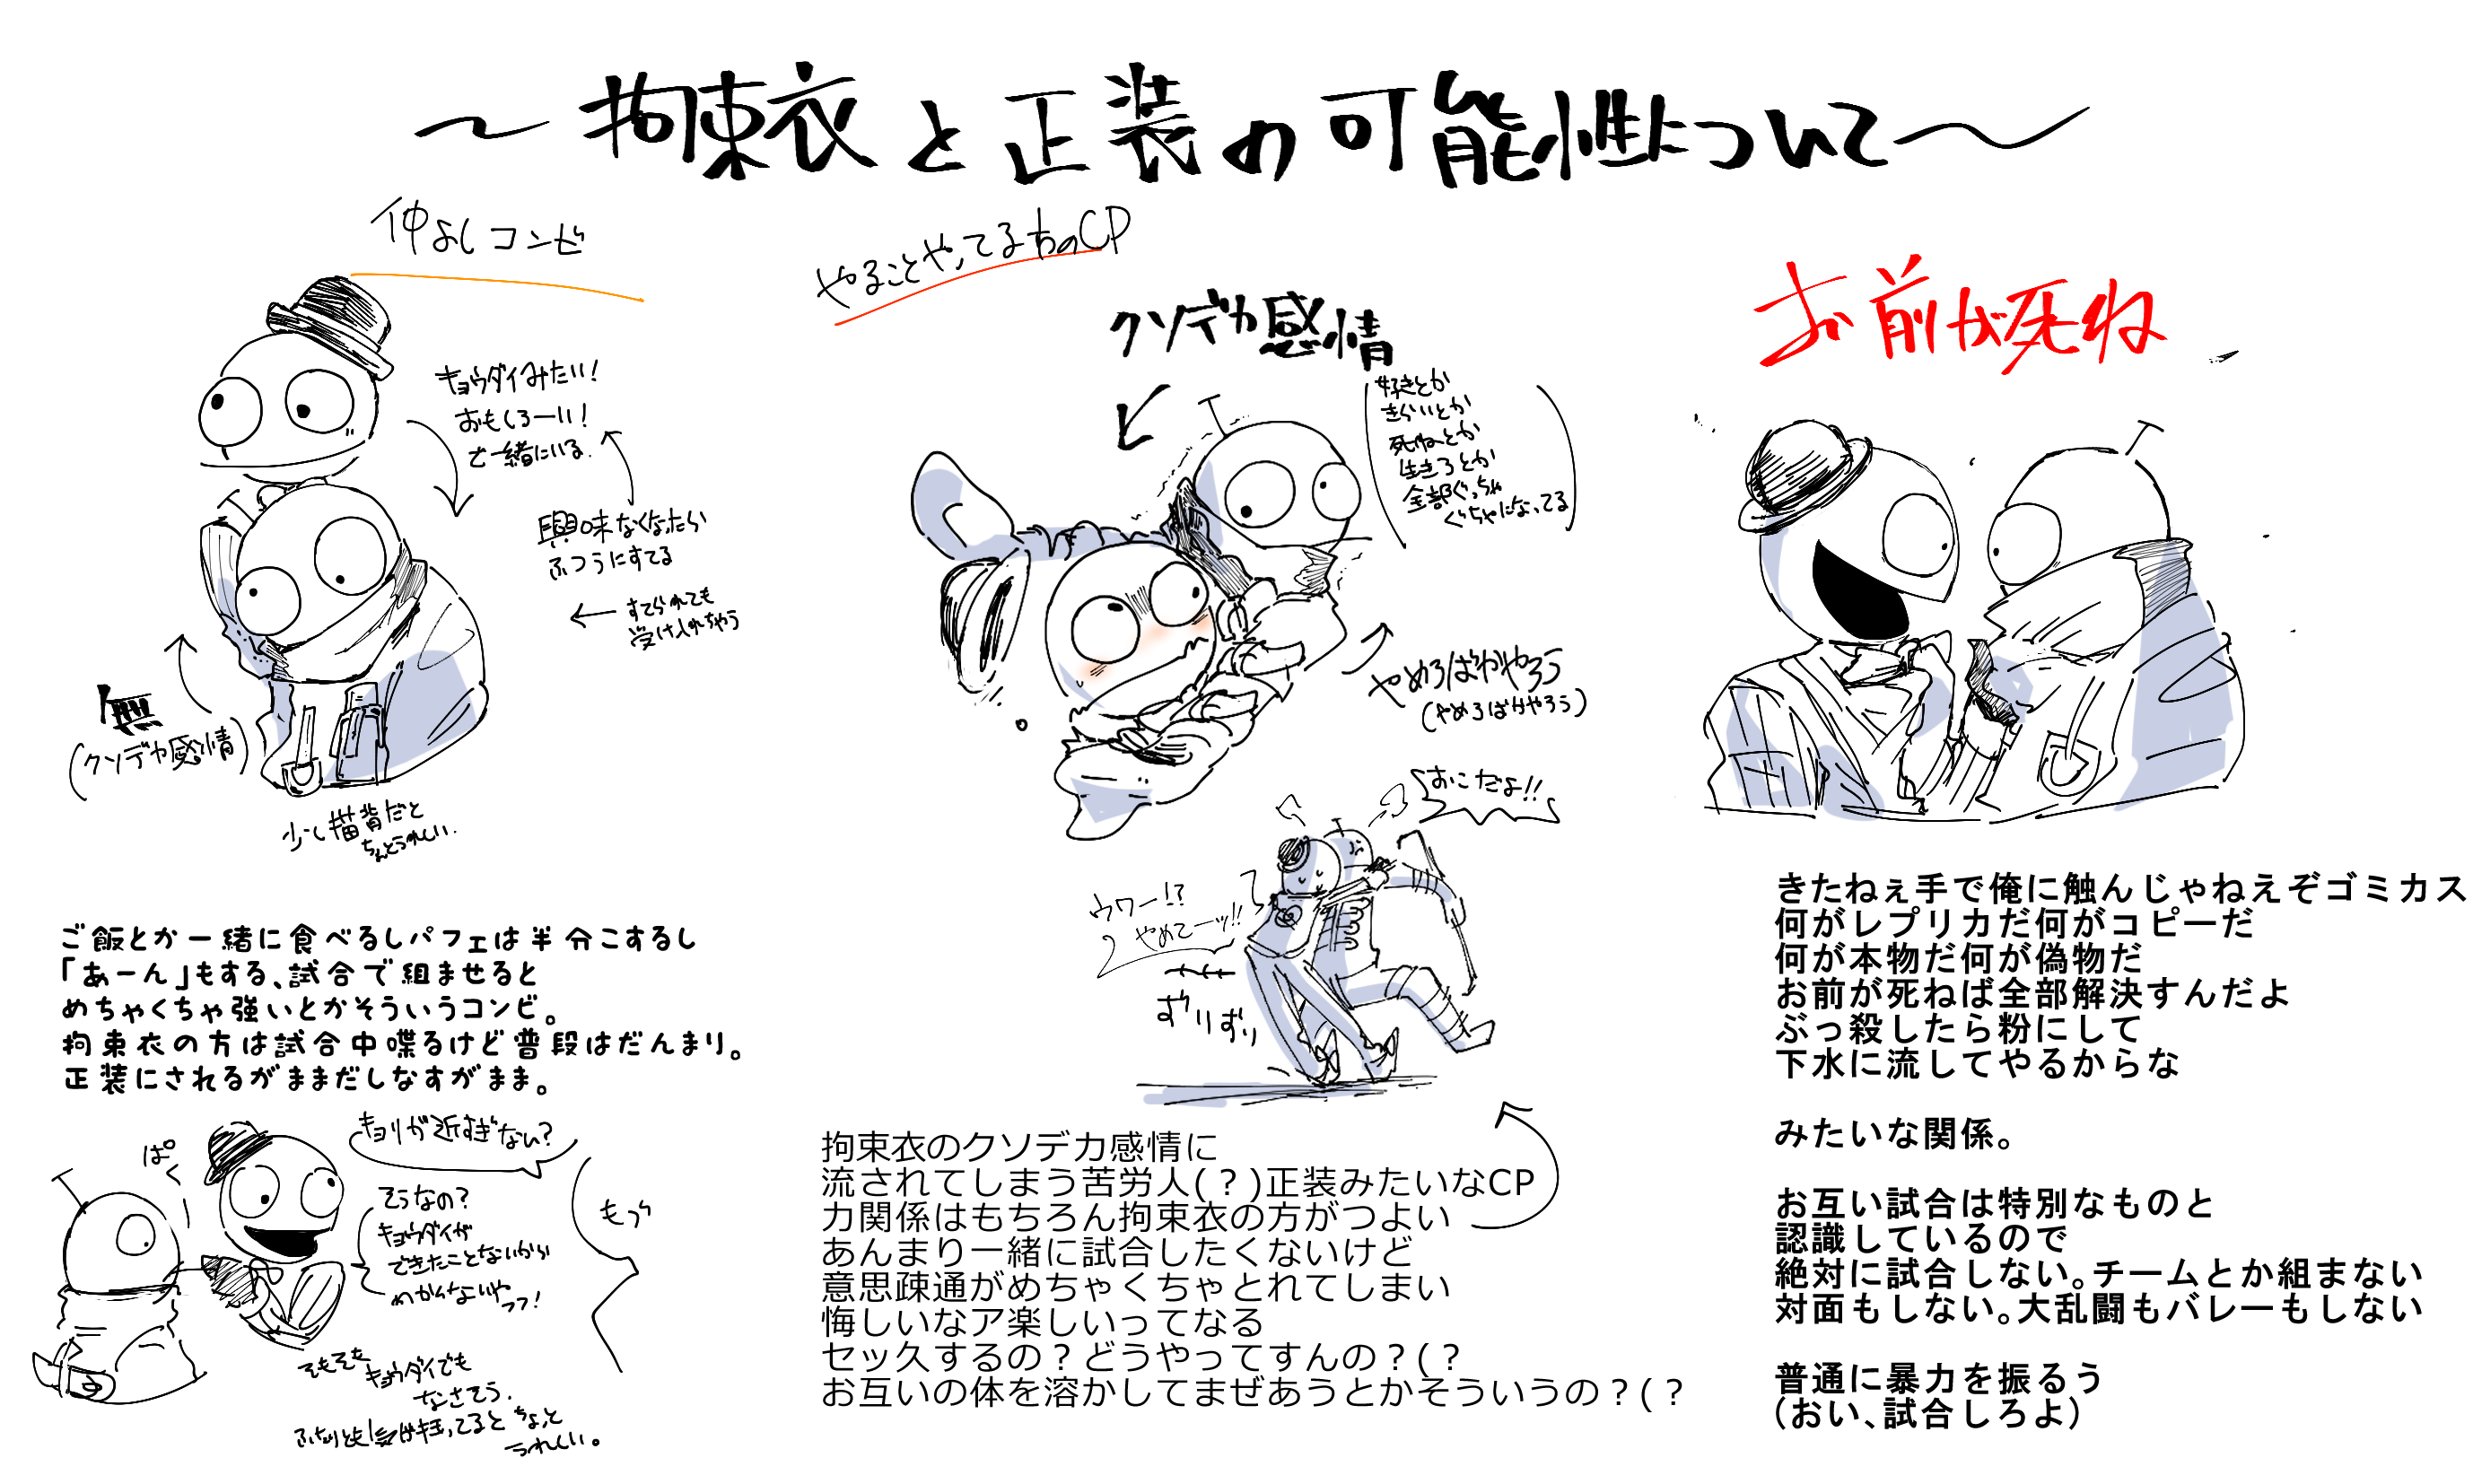 〜拘束衣と正装の可能性について〜
仲よしコンビ
キョウダイみたい!
おもしろーい!
で一緒にいる.
興味なくなったら
ふつうにすてる
すてられても
受け入れちゃう
無
(クソデカ感情)
少し猫背だと
ちょっとうれしい.
ご飯とか一緒に食べるしパフェは半分こするし
「あーん」もする、試合で組ませると
めちゃくちゃ強いとかそういうコンビ。
拘束衣の方は試合中喋るけど普段はだんまり。
正装にされるがままだしなすがまま。
ぱく
キョリが近すぎない?
そうなの?
キョウダイが
できたことないから
わからないや
フフ!
もっ
そもそも
キョウダイでも
なさそう.
ふたりとも気が狂ってると ちょっと
うれしい。
やることやってる方のCP
クソデカ感情
好きとか
きらいとか
死ねとか
生きろとか
全部ぐっちゃ
ぐちゃになってる
やめろばかやろう
(やめろばかやろう)
おこだよ!!
ウワー!?
やめてーッ!!
ずりずり
拘束衣のクソデカ感情に
流されてしまう苦労人(？)正装みたいなCP
力関係はもちろん拘束衣の方がつよい
あんまり一緒に試合したくないけど
意思疎通がめちゃくちゃとれてしまい
悔しいなア楽しいってなる
セッ久するの？どうやってすんの？(？
お互いの体を溶かしてまぜあうとかそういうの？(？
お前が死ね
きたねぇ手で俺に触んじゃねえぞゴミカス
何がレプリカだ何がコピーだ
何が本物だ何が偽物だ
お前が死ねば全部解決すんだよ
ぶっ殺したら粉にして
下水に流してやるからな
みたいな関係。
お互い試合は特別なものと
認識しているので
絶対に試合しない。チームとか組まない
対面もしない。大乱闘もバレーもしない
普通に暴力を振るう
(おい、試合しろよ)